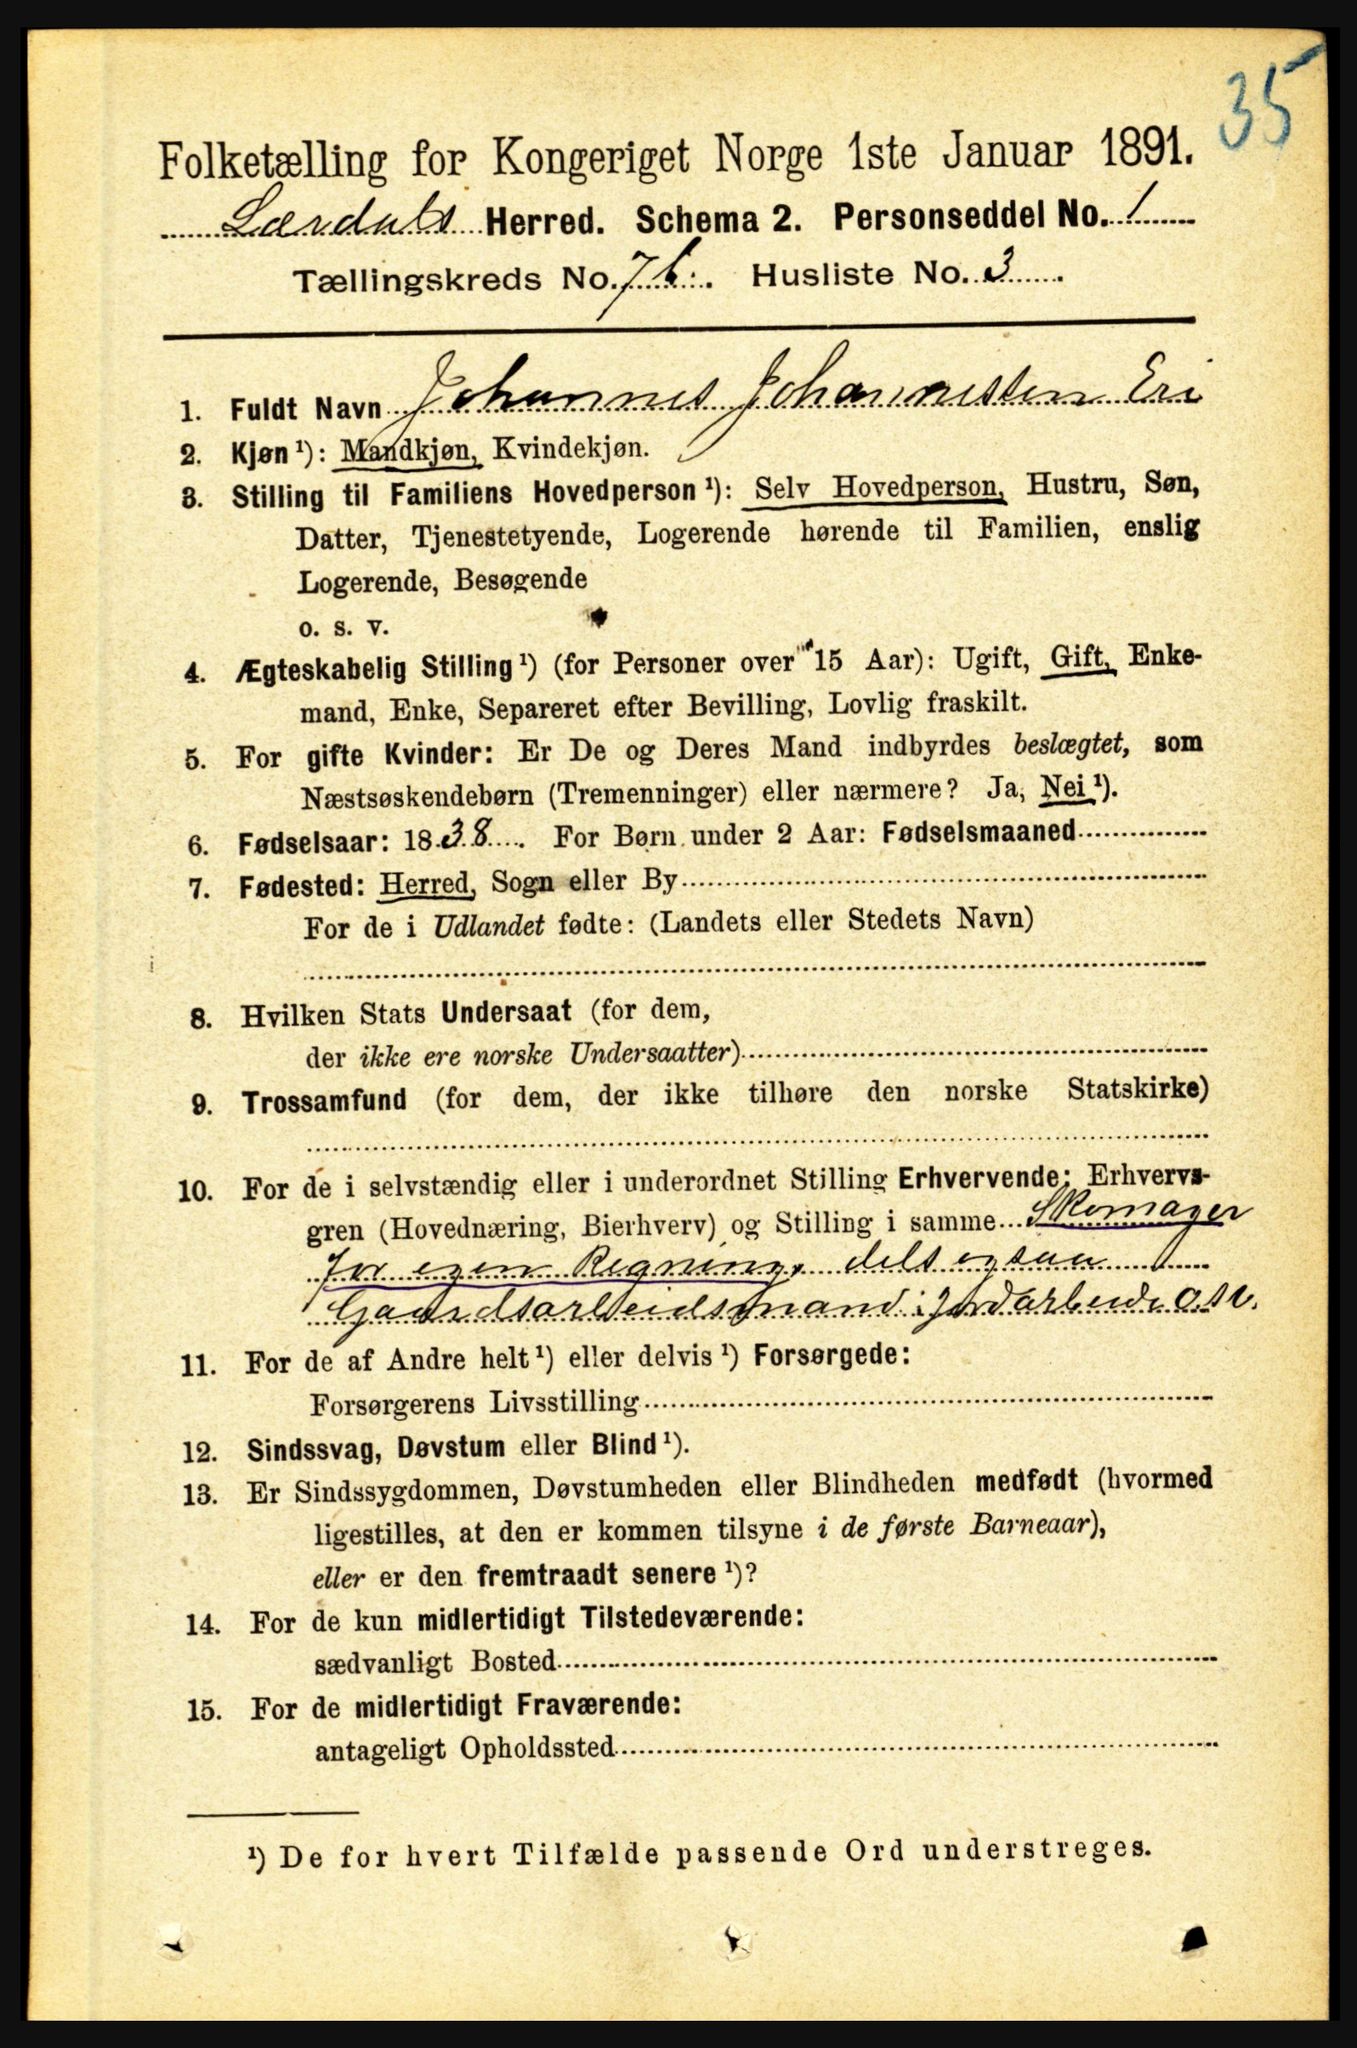 35
Folketælling for Kongeriget Norge 1ste Januar 1891.
Lærdals Herred. Schema 2. Personseddel No. 1
Tællingskreds No. 7b. Husliste No. 3.
1. Fuldt Navn Johannes Johannessen Eri
2. Kjøn ¹): Mandkjøn, Kvindekjøn.
3. Stilling til Familiens Hovedperson ¹): Selv Hovedperson, Hustru, Søn,
Datter, Tjenestetyende, Logerende hørende til Familien, enslig
Logerende, Besøgende
o. s. v.
4. Ægteskabelig Stilling ¹) (for Personer over 15 Aar): Ugift, Gift, Enke-
mand, Enke, Separeret efter Bevilling, Lovlig fraskilt.
5. For gifte Kvinder: Er De og Deres Mand indbyrdes beslægtet, som
Næstsøskendebørn (Tremenninger) eller nærmere? Ja, Nei ¹).
6. Fødselsaar: 1838. For Børn under 2 Aar: Fødselsmaaned
7. Fødested: Herred, Sogn eller By
For de i Udlandet fødte: (Landets eller Stedets Navn)
8. Hvilken Stats Undersaat (for dem,
der ikke ere norske Undersaatter)
9. Trossamfund (for dem, der ikke tilhøre den norske Statskirke)
10. For de i selvstændig eller i underordnet Stilling Erhvervende: Erhvervs-
gren (Hovednæring, Bierhverv) og Stilling i samme Skomager
for egen Regning, dels ogsaa
Gaardsarbeidsmand: Jordarbeide o.s.v.
11. For de af Andre helt ¹) eller delvis ¹) Forsørgede:
Forsørgerens Livsstilling
12. Sindssvag, Døvstum eller Blind ¹).
13. Er Sindssygdommen, Døvstumheden eller Blindheden medfødt (hvormed
ligestilles, at den er kommen tilsyne i de første Barneaar),
eller er den fremtraadt senere ¹)?
14. For de kun midlertidigt Tilstedeværende:
sædvanligt Bosted
15. For de midlertidigt Fraværende:
antageligt Opholdssted
¹) De for hvert Tilfælde passende Ord understreges.